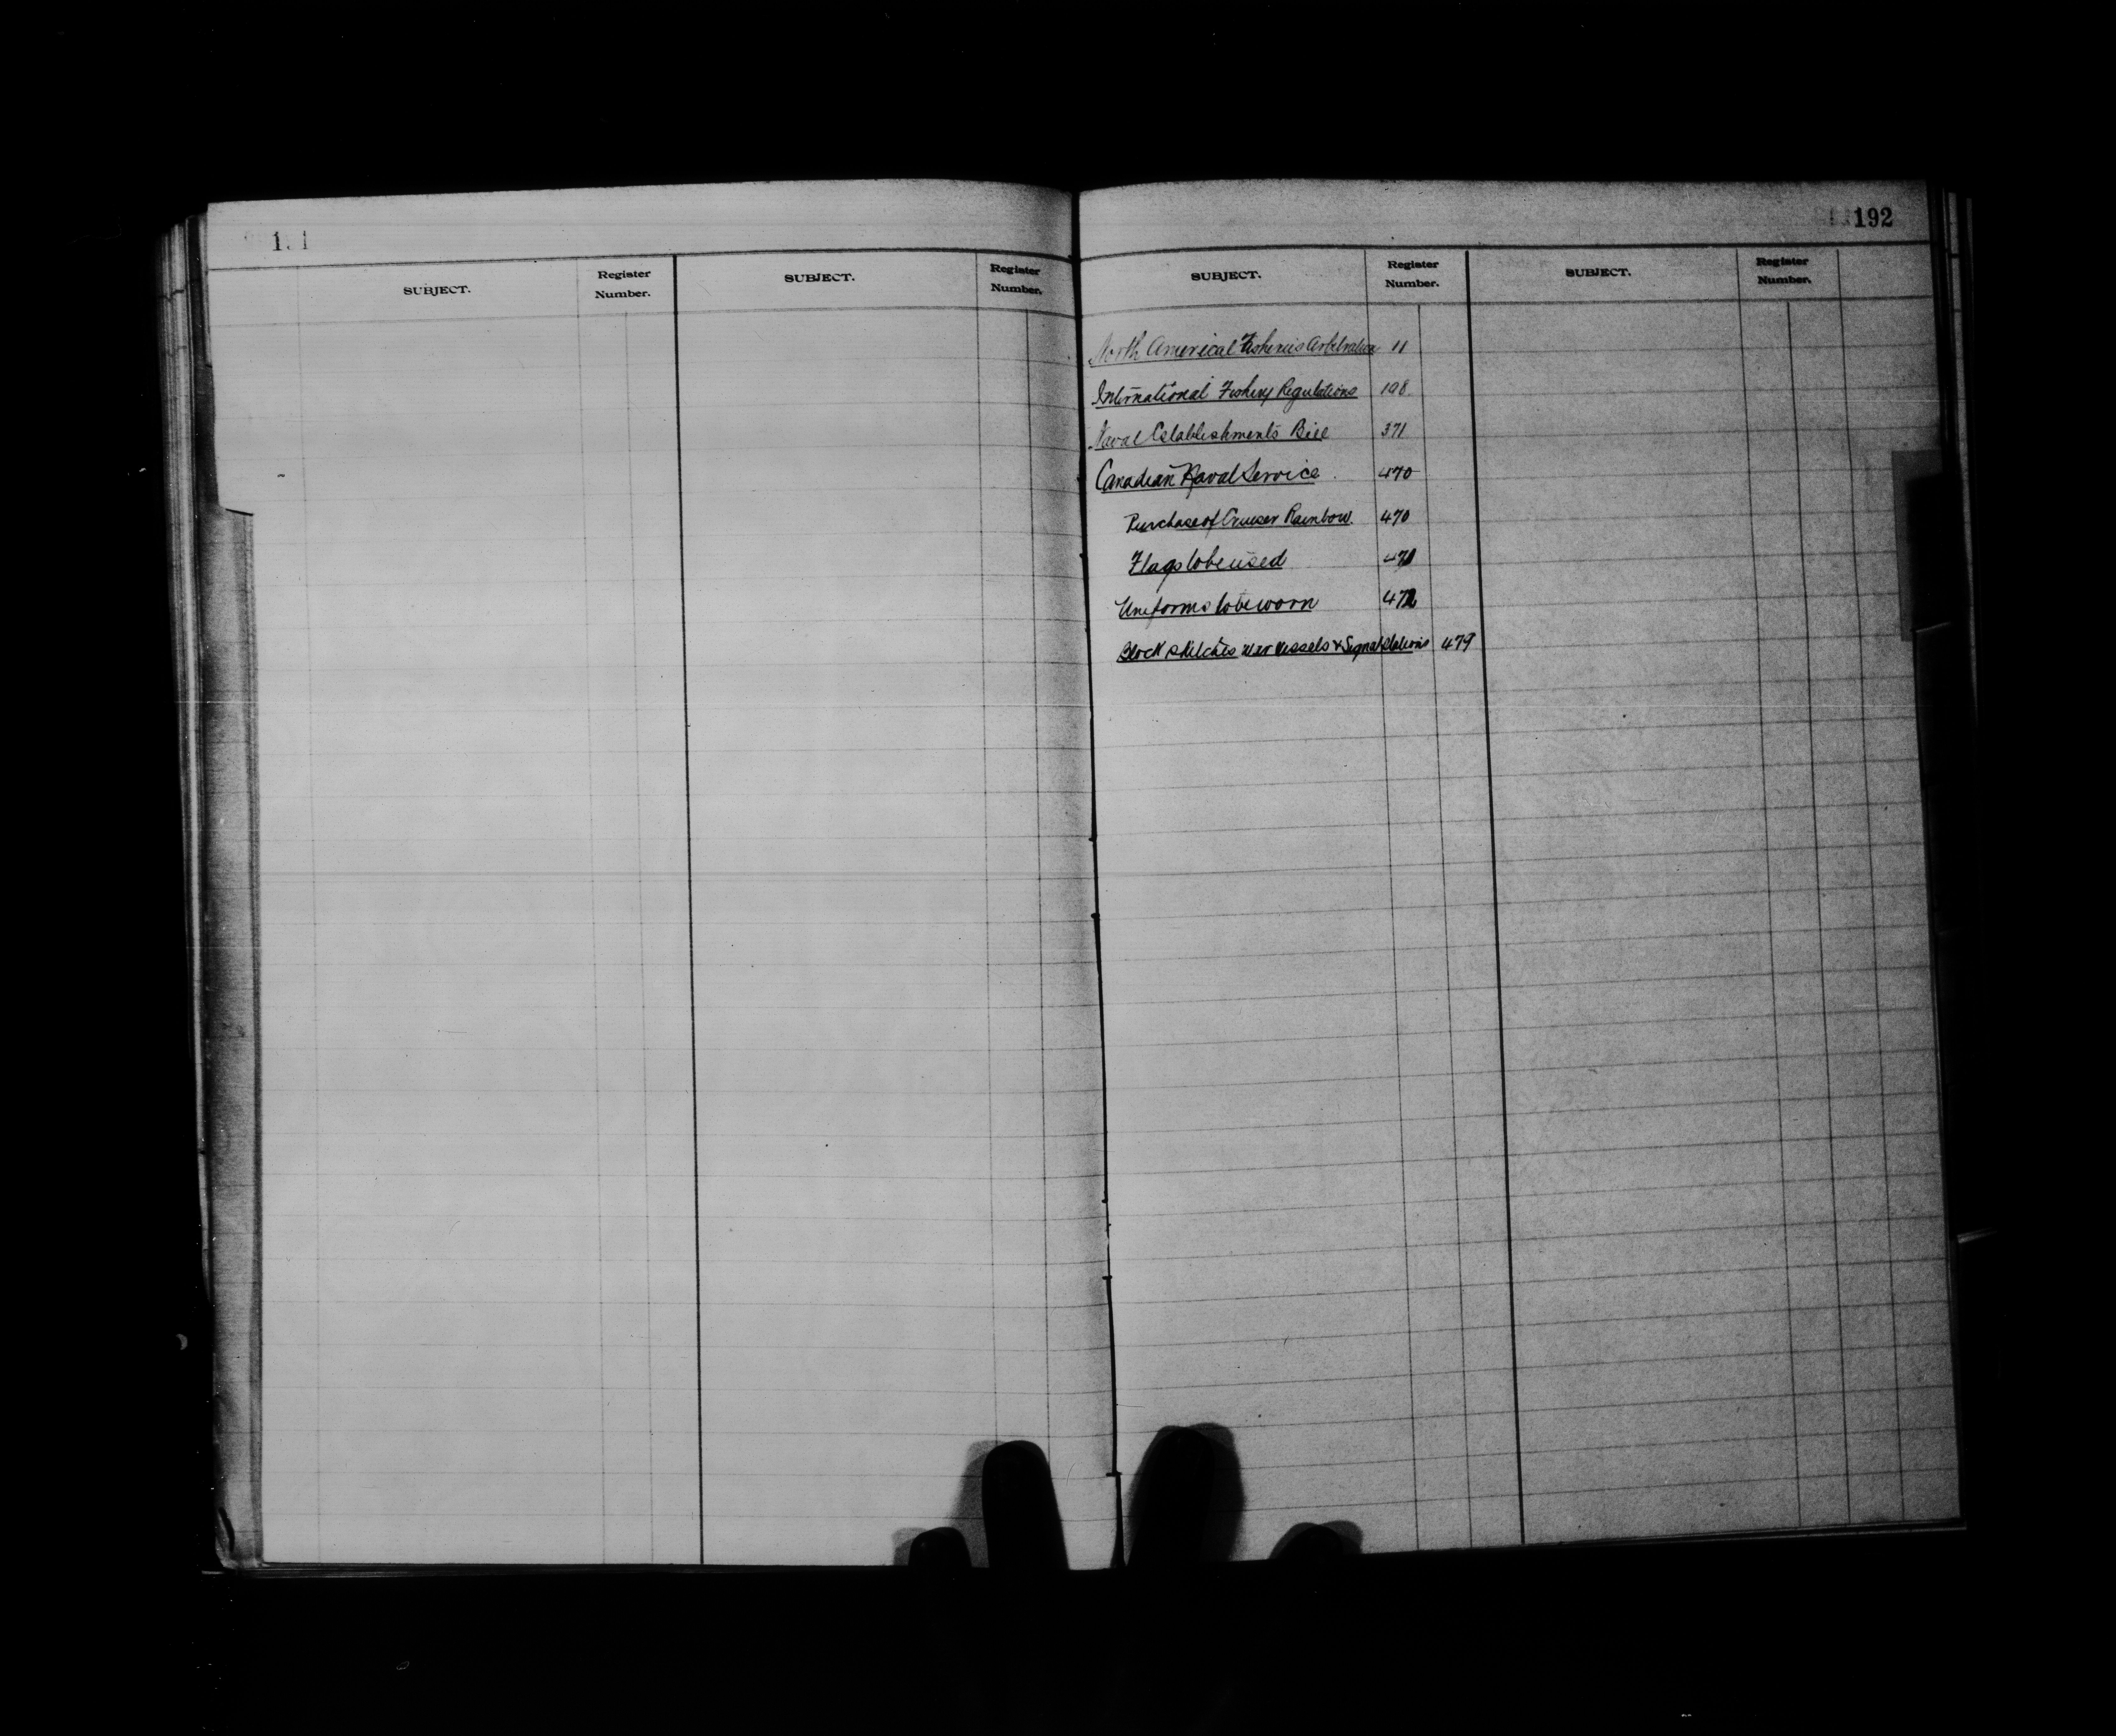 191
SUBJECT. Register Number. SUBJECT. Register Number.
192
SUBJECT. Register Number. SUBJECT. Register Number.
North American Fisheries Arbitration 11
International Fishery Regulations 198
Naval Establishments Bill 371
Canadian Naval Service 470
Purchase of Cruiser Rainbow. 470
Flags to be used 471
Uniforms to be worn 472
Block sketches war vessels & Signal Stations 479